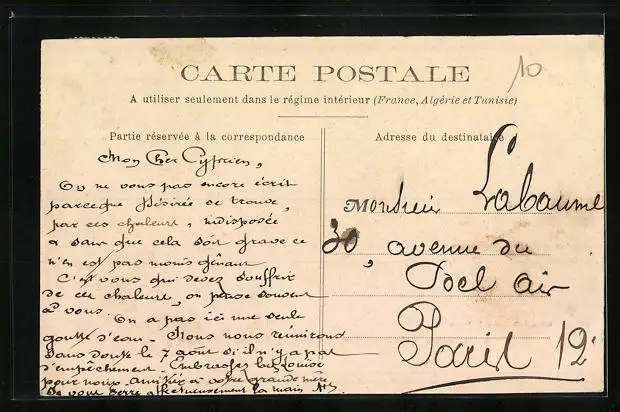 10
CARTE POSTALE
A utiliser seulement dans le régime intérieur (France, Algérie et Tunisie)
Partie réservée à la correspondance
Mon Cher Cyprien,
On ne vous pas encore écrit
parceque Désirée se trouve,
par ces chaleurs, indisposée
a sans que cela soit grave ce
n'en est pas moins gênant
C'est vous qui devez souffrir
de ces chaleurs, on pense souvent
à vous. On a pas ici une seule
goutte d'eau. Nous nous réunirons
sans doute le 7 août s'il n'y a pas
d'empêchement. Embrassez Louise
pour nous. Amitiés à votre grande mère
Je vous serre affectueusement la main
Adresse du destinataire
Monsieur Labaume
30, avenue du
Bel air
Paris 12e